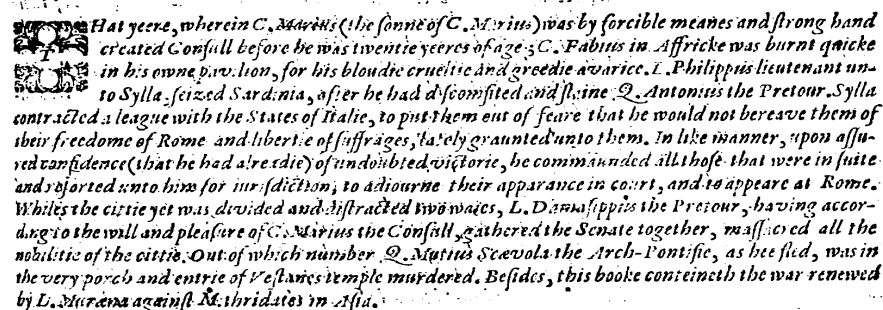 THat yeere, wherein C. Marius (the sonne of C. Marius) was by forcible meanes and strong hand
created Consull before he was twentie yeeres of age; C. Fabius in Affricke was burnt quicke
in his owne pavilion, for his bloudie crueltie and greedie avarice. L. Philippus lieutenant un-
to Sylla seized Sardinia, after he had discomfited and slaine Q. Antonius the Pretour. Sylla
contracted a league with the States of Italie, to put them out of feare that he would not bereave them of
their freedome of Rome and libertie of suffrages, lately graunted unto them. In like manner, upon assu-
red confidence (that he had alreadie) of undoubted victorie, he commaunded all those that were in suite
and resorted unto him for iurisdiction, to adiourne their apparance in court, and to appeare at Rome.
Whiles the cittie yet was divided and distracted two waies, L. Damasippus the Pretour, having accor-
ding to the will and pleasure of C. Marius the Consull, gathered the Senate together, massacred all the
nobilitie of the cittie. Out of which number Q. Mutius Scævola the Arch-Pontifie, as hee fled, was in
the very porch and entrie of Vestaes temple murdered. Besides, this booke conteineth the war renewed
by L. Muræna against Mithridates in Asia.